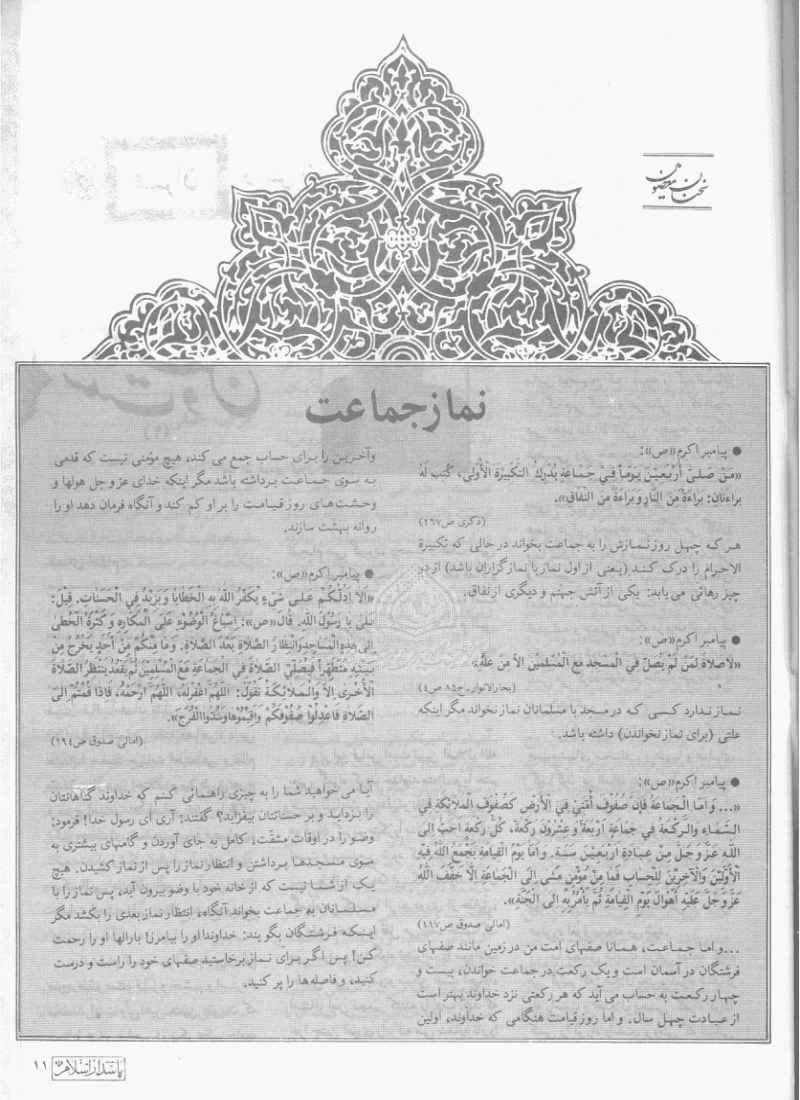 سخنان معصومان
نماز جماعت
● پیامبر اکرم «ص»:
«مَن صَلّیٰ اَرْبَعینَ یَوْماً فی جَماعَةٍ یُدْرِكُ التَّکبیرَةَ الْأُولیٰ، کُتِبَ لَهُ
براءتان: بَراءَةٌ مِنَ النّارِ وَ بَراءَةٌ مِنَ النِّفاقِ».
(ذکری ص۲۶۷)
هر که چهل روز نمازش را به جماعت بخواند در حالی که تکبیرة
الاحرام را درک کند (یعنی از اول نماز با نمازگزاران باشد) از دو
چیز رهائی می یابد: یکی از آتش جهنم و دیگری از نفاق.
● پیامبر اکرم «ص»:
«لاصَلاةَ لِمَنْ لَمْ یُصَلِّ فی الْمَسْجِدِ مَعَ الْمُسْلِمینَ اِلّا مِنْ عِلَّةٍ»
(بحارالانوار-ج۸۵ ص۴)
نماز ندارد کسی که در مسجد با مسلمانان نماز نخواند مگر اینکه
علتی (برای نماز نخواندن) داشته باشد.
● پیامبر اکرم «ص»:
«... وَ اَمَّا الْجَماعَةُ فَاِنَّ صُفُوفَ اُمَّتی فِی الْاَرْضِ کَصُفُوفِ الْمَلائِکَةِ فِی
السَّماءِ وَ الرَّکْعَةُ فی جَماعَةٍ اَرْبَعَةٌ وَ عِشْرُونَ رَکْعَةً، کُلُّ رَکْعَةٍ اَحَبُّ اِلَی
اللهِ عَزَّ وَ جَلَّ مِنْ عِبادَةِ اَرْبَعینَ سَنَةً. وَ اَمّا یَوْمُ الْقِیامَةِ یَجْمَعُ اللهُ فیهِ
الْأَوَّلینَ وَالْآخِرینَ لِلْحِسابِ فَما مِنْ مُؤْمِنٍ مَشیٰ اِلَی الْجَماعَةِ اِلّا خَفَّفَ اللهُ
عَزَّ وَ جَلَّ عَلَیْهِ اَهْوالَ یَوْمِ الْقِیامَةِ ثُمَّ یَأْمُرُ بِهِ اِلَی الْجَنَّةِ».
(امالی صدوق ص۱۱۷)
...و اما جماعت، همانا صفهای امت من در زمین مانند صفهای
فرشتگان در آسمان است و یک رکعت در جماعت خواندن، بیست و
چهار رکعت به حساب می آید که هر رکعتی نزد خداوند بهتر است
از عبادت چهل سال. و اما روز قیامت هنگامی که خداوند، اولین
و آخرین را برای حساب جمع می کند، هیچ مؤمنی نیست که قدمی
به سوی جماعت برداشته باشد مگر اینکه خدای عز و جل هولها و
وحشت های روز قیامت را بر او کم کند و آنگاه فرمان دهد او را
روانه بهشت سازند.
● پیامبر اکرم «ص»:
«اَلا اَدُلُّکُمْ عَلیٰ شَیءٍ یُکَفِّرُ اللهُ بِهِ الْخَطایا وَ یَزیدُ فِی الْحَسَناتِ. قیلَ:
بَلیٰ یا رَسُولَ اللهِ. قالَ «ص»: اِسْباغُ الْوُضُوءِ عَلَی الْمَکارِهِ وَ کَثْرَةُ الْخُطیٰ
اِلیٰ هٰذِهِ الْمَساجِدِ وَ انْتِظارُ الصَّلاةِ بَعْدَ الصَّلاةِ. وَ ما مِنْکُمْ مِنْ اَحَدٍ یَخْرُجُ مِنْ
بَیْتِهِ مُتَطَهِّراً فَیُصَلِّی الصَّلاةَ فِی الْجَماعَةِ مَعَ الْمُسْلِمینَ ثُمَّ یَقْعُدُ یَنْتَظِرُ الصَّلاةَ
الْأُخْریٰ اِلّا وَالْمَلائِکَةُ تَقُولُ: اَللّهُمَّ اغْفِرْ لَهُ، اَللّهُمَّ ارْحَمْهُ، فَاِذا قُمْتُمْ اِلَی
الصَّلاةِ فَاعْدِلُوا صُفُوفَکُمْ وَ اَقیمُوها وَ سُدُّوا الْفُرَجَ».
(امالی صدوق ص۱۹۴)
آیا می خواهید شما را به چیزی راهنمائی کنم که خداوند گناهانتان
را بزداید و بر حسناتتان بیفزاید؟ گفتند: آری ای رسول خدا! فرمود:
وضو را در اوقات مشقّت، کامل به جای آوردن و گامهای بیشتری به
سوی مسجدها برداشتن و انتظار نماز را پس از نماز کشیدن. هیچ
یک از شما نیست که از خانه خود با وضو بیرون آید، پس نماز را با
مسلمانان به جماعت بخواند آنگاه، انتظار نماز بعدی را بکشد مگر
اینکه فرشتگان بگویند: خداوندا او را بیامرز! بارالها او را رحمت
کن! پس اگر برای نماز برخاستید صفهای خود را راست و درست
کنید، و فاصله ها را پر کنید.
پاسدار اسلام ۱۱